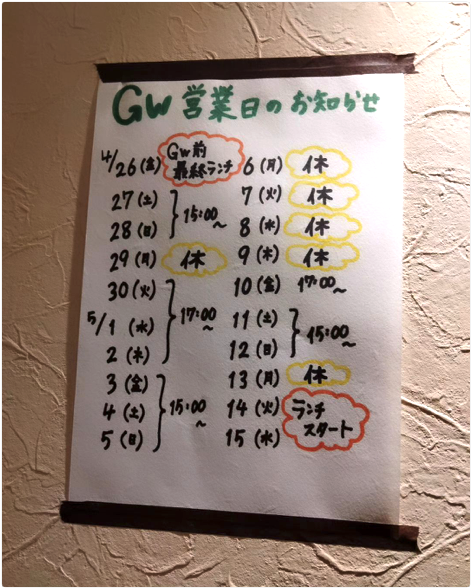 GW 営業日のお知らせ
4/26 (金) GW前
最終ランチ
27 (土)
28 (日)
15:00~
29 (月) 休
30 (火)
5/1 (水)
2 (木)
17:00~
3 (金)
4 (土)
5 (日)
15:00~
6 (月) 休
7 (火) 休
8 (水) 休
9 (木) 休
10 (金) 17:00~
11 (土)
12 (日)
15:00~
13 (月) 休
14 (火)
15 (水)
ランチ
スタート